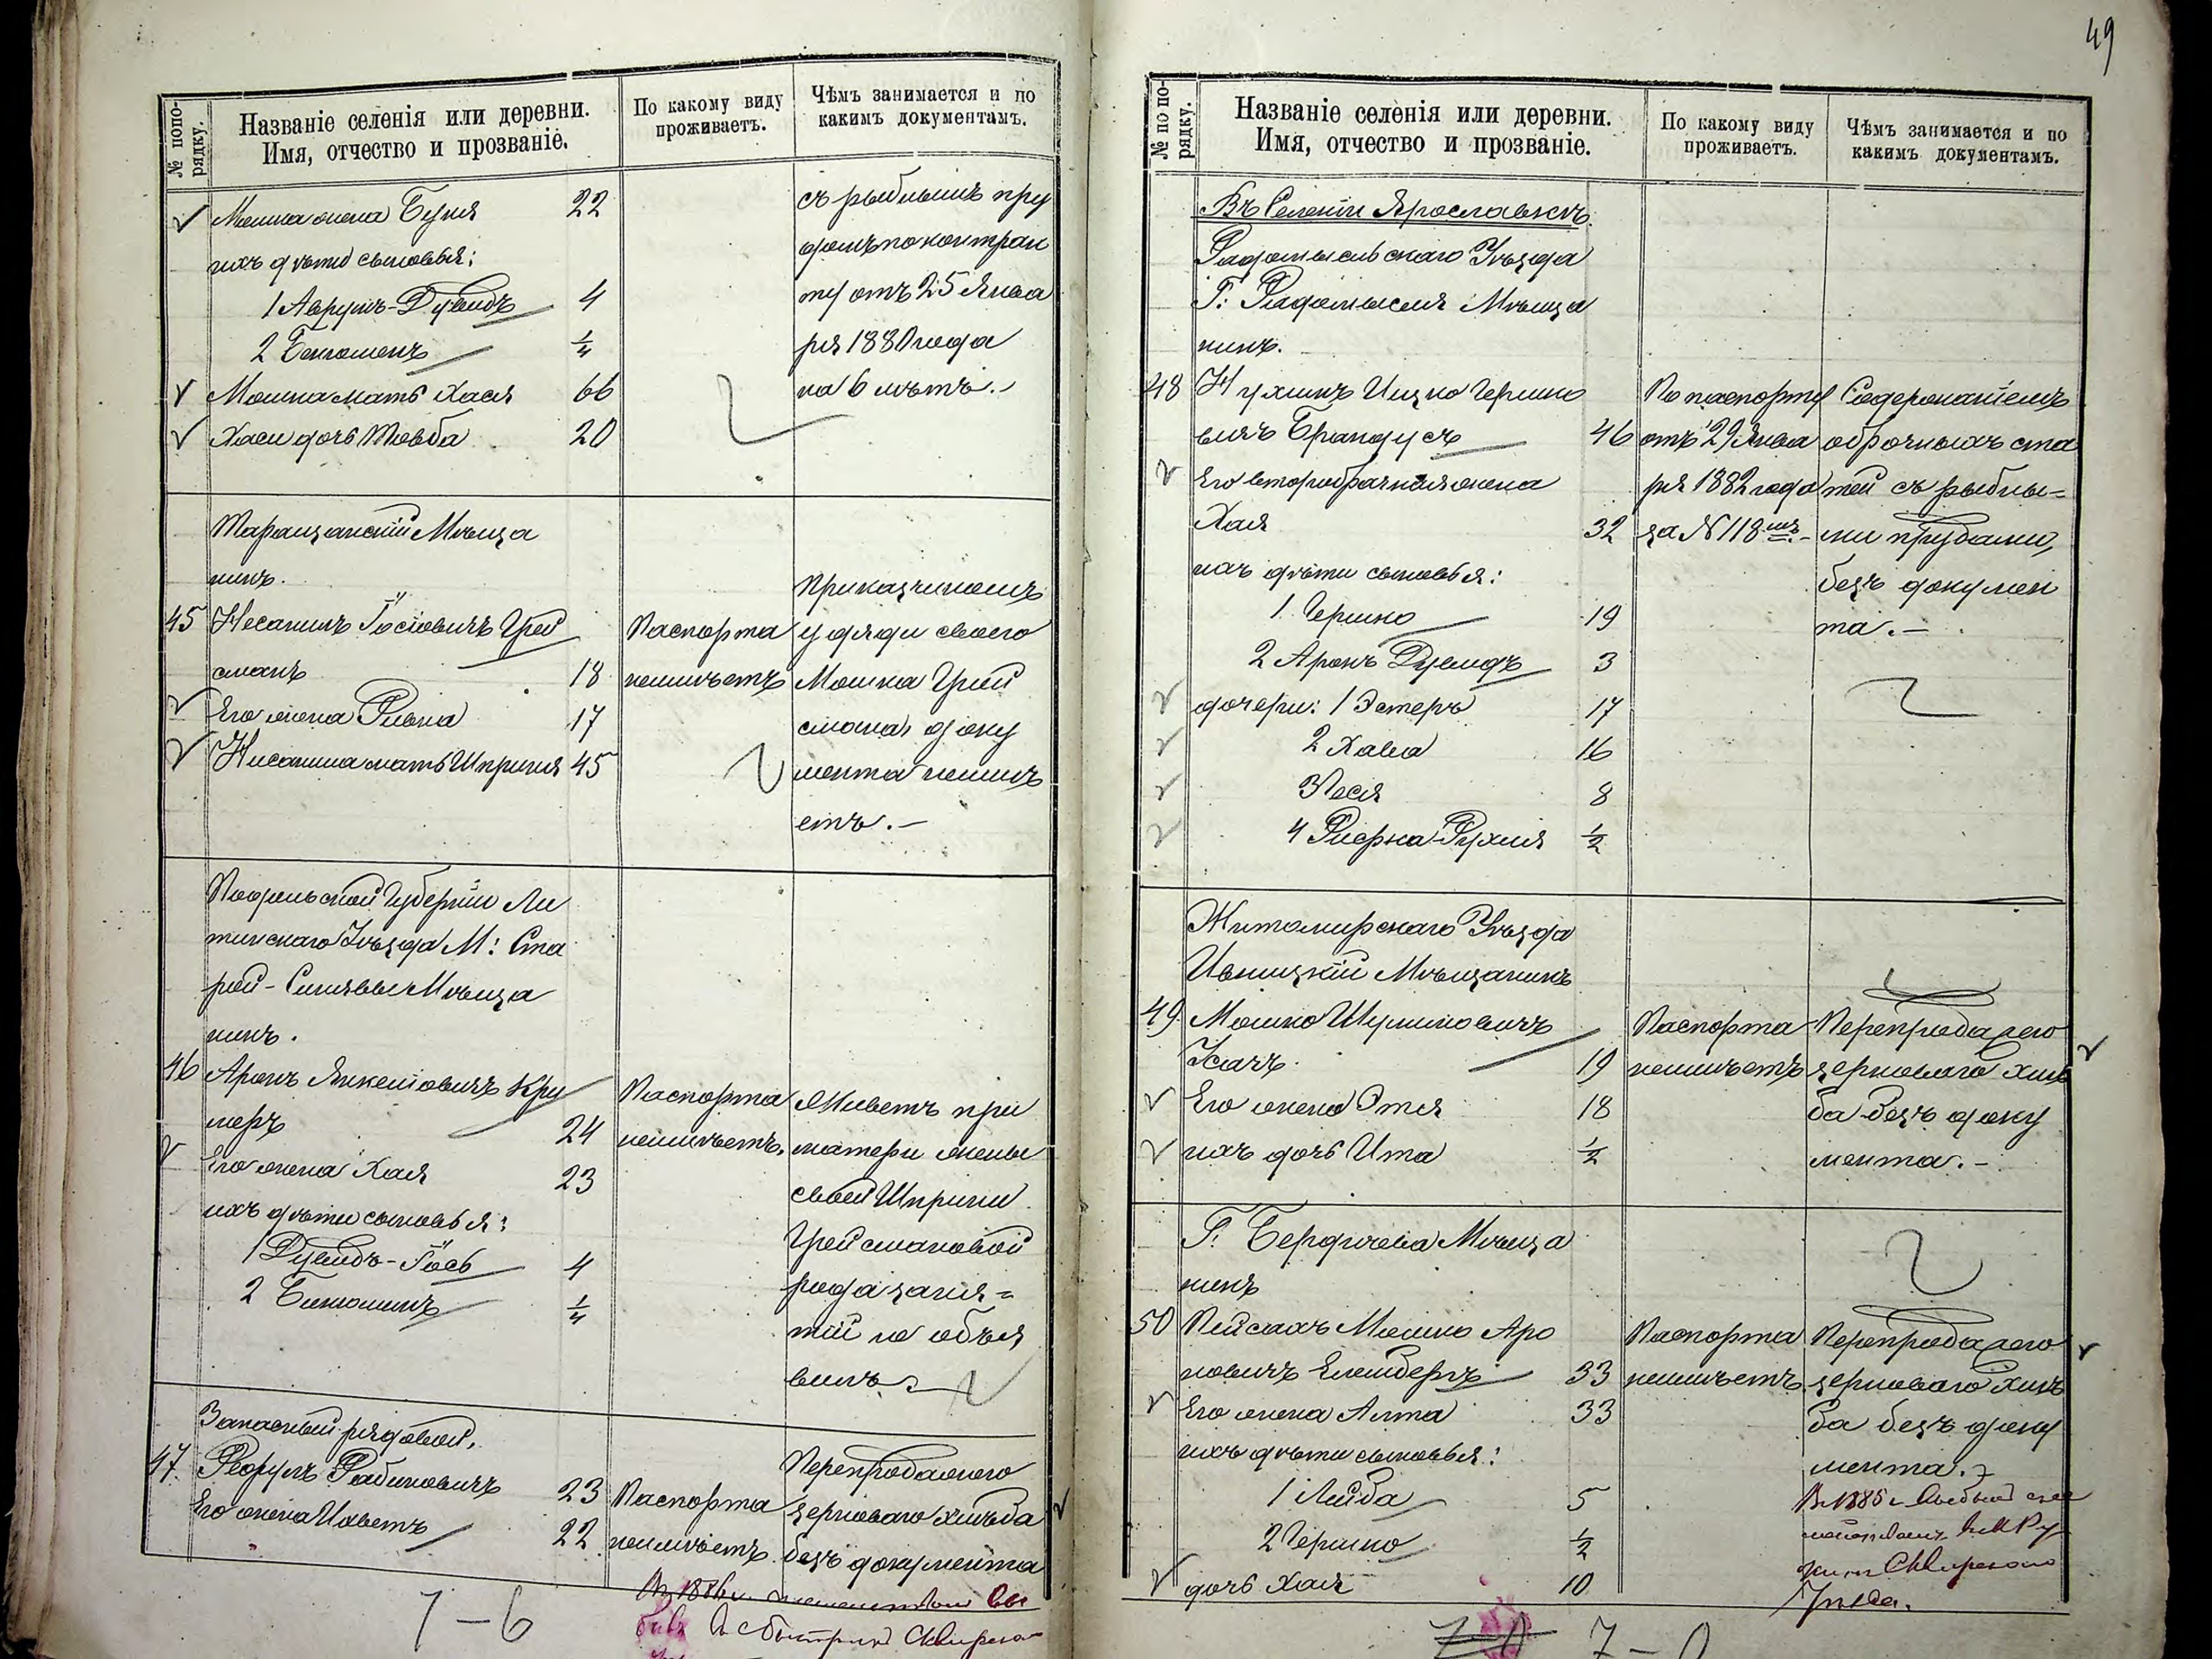 № попо-
рядку.
Названіе селенія или деревни.
Имя, отчество и прозваніе.
По какому виду
проживаетъ.
Чѣмъ занимается и по
какимъ документамъ.
Мошка жена Буня 22
ихъ дѣти сыновья:
1 Аврумъ-Дувидъ 4
2 Беньоменъ 1/4
Мошка мать Хася 66
Хаси дочь Товба 20
съ рыбнымъ пру
домъ по контрак
ту отъ 25 Янва
ря 1880 года
на 6 лѣтъ.
Таращанскій Мѣща
нинъ.
45 Несанимъ Іосіовичъ Грей
сманъ 18
Его жена Ривка 17
Нисанима мать Шприня 45
Паспорта
неимѣетъ
Приказчикомъ
у дяди своего
Мошка Грей
смана, доку
мента неимѣ
етъ.-
Подольской Губерніи Ли
тинскаго Уѣзда М: Ста
рой-Синявы Мѣща
нинъ.
46 Аронъ Янкеліовичъ Кри
меръ 24
Его жена Хая 23
ихъ дѣти сыновья:
1 Дувидъ-Іось 4
2 Биньоминъ 1/4
Паспорта
неимѣетъ.
Живетъ при
матери жены
своей Шприни
Грейсмановой
рода заня=
тій не объя
вилъ.
Запасный рядовой.
47. Рафулъ Рабиновичъ 23
Его жена Иаветъ 22
Паспорта
неимѣетъ.
Перепродажею
зерноваго хлѣба
безъ документа
7-6
49
№ по по-
рядку.
Названіе селенія или деревни.
Имя, отчество и прозваніе.
По какому виду
проживаетъ.
Чѣмъ занимается и по
какимъ документамъ.
Въ Селеніи Ярославкѣ.
Радомысльскаго Уѣзда
Г: Радомысля Мѣща
нинъ.
48 Нухимъ Ицко Гершко
вичъ Брандусъ 46
Его второбрачная жена
Хая 32
ихъ дѣти сыновья:
1. Гершко 19
2 Аронъ Дувидъ 3
дочери: 1 Эстеръ 17
2 Хава 16
3 Песя 8
4 Рифка-Рухля 1/2
По паспорту
отъ 29 Янва
ря 1882 года
за N 118мъ.-
Содержаніемъ
оброчныхъ ста
тей съ рыбны=
ми прудами,
безъ докумен
та.-
Житомирскаго Уѣзда
Ивницкій Мѣщанинъ
49. Мошко Шулимовичъ
Усачъ. 19
Его жена Этя 18
ихъ дочь Ита 1/2
Паспорта
неимѣетъ
Перепродажею
зерноваго хлѣ
ба безъ доку
мента.-
Г. Бердичева Мѣща
нинъ
50 Пейсахъ Мошко Аро
новичъ 33
Его жена Алта 33
ихъ дѣти сыновья:
1 Лейба 5
2 Гершко 1/2
дочь Хая 10
Паспорта
неимѣетъ
Перепродажею
зерноваго хлѣ
ба безъ доку
мента.
Уѣзда.
7-0